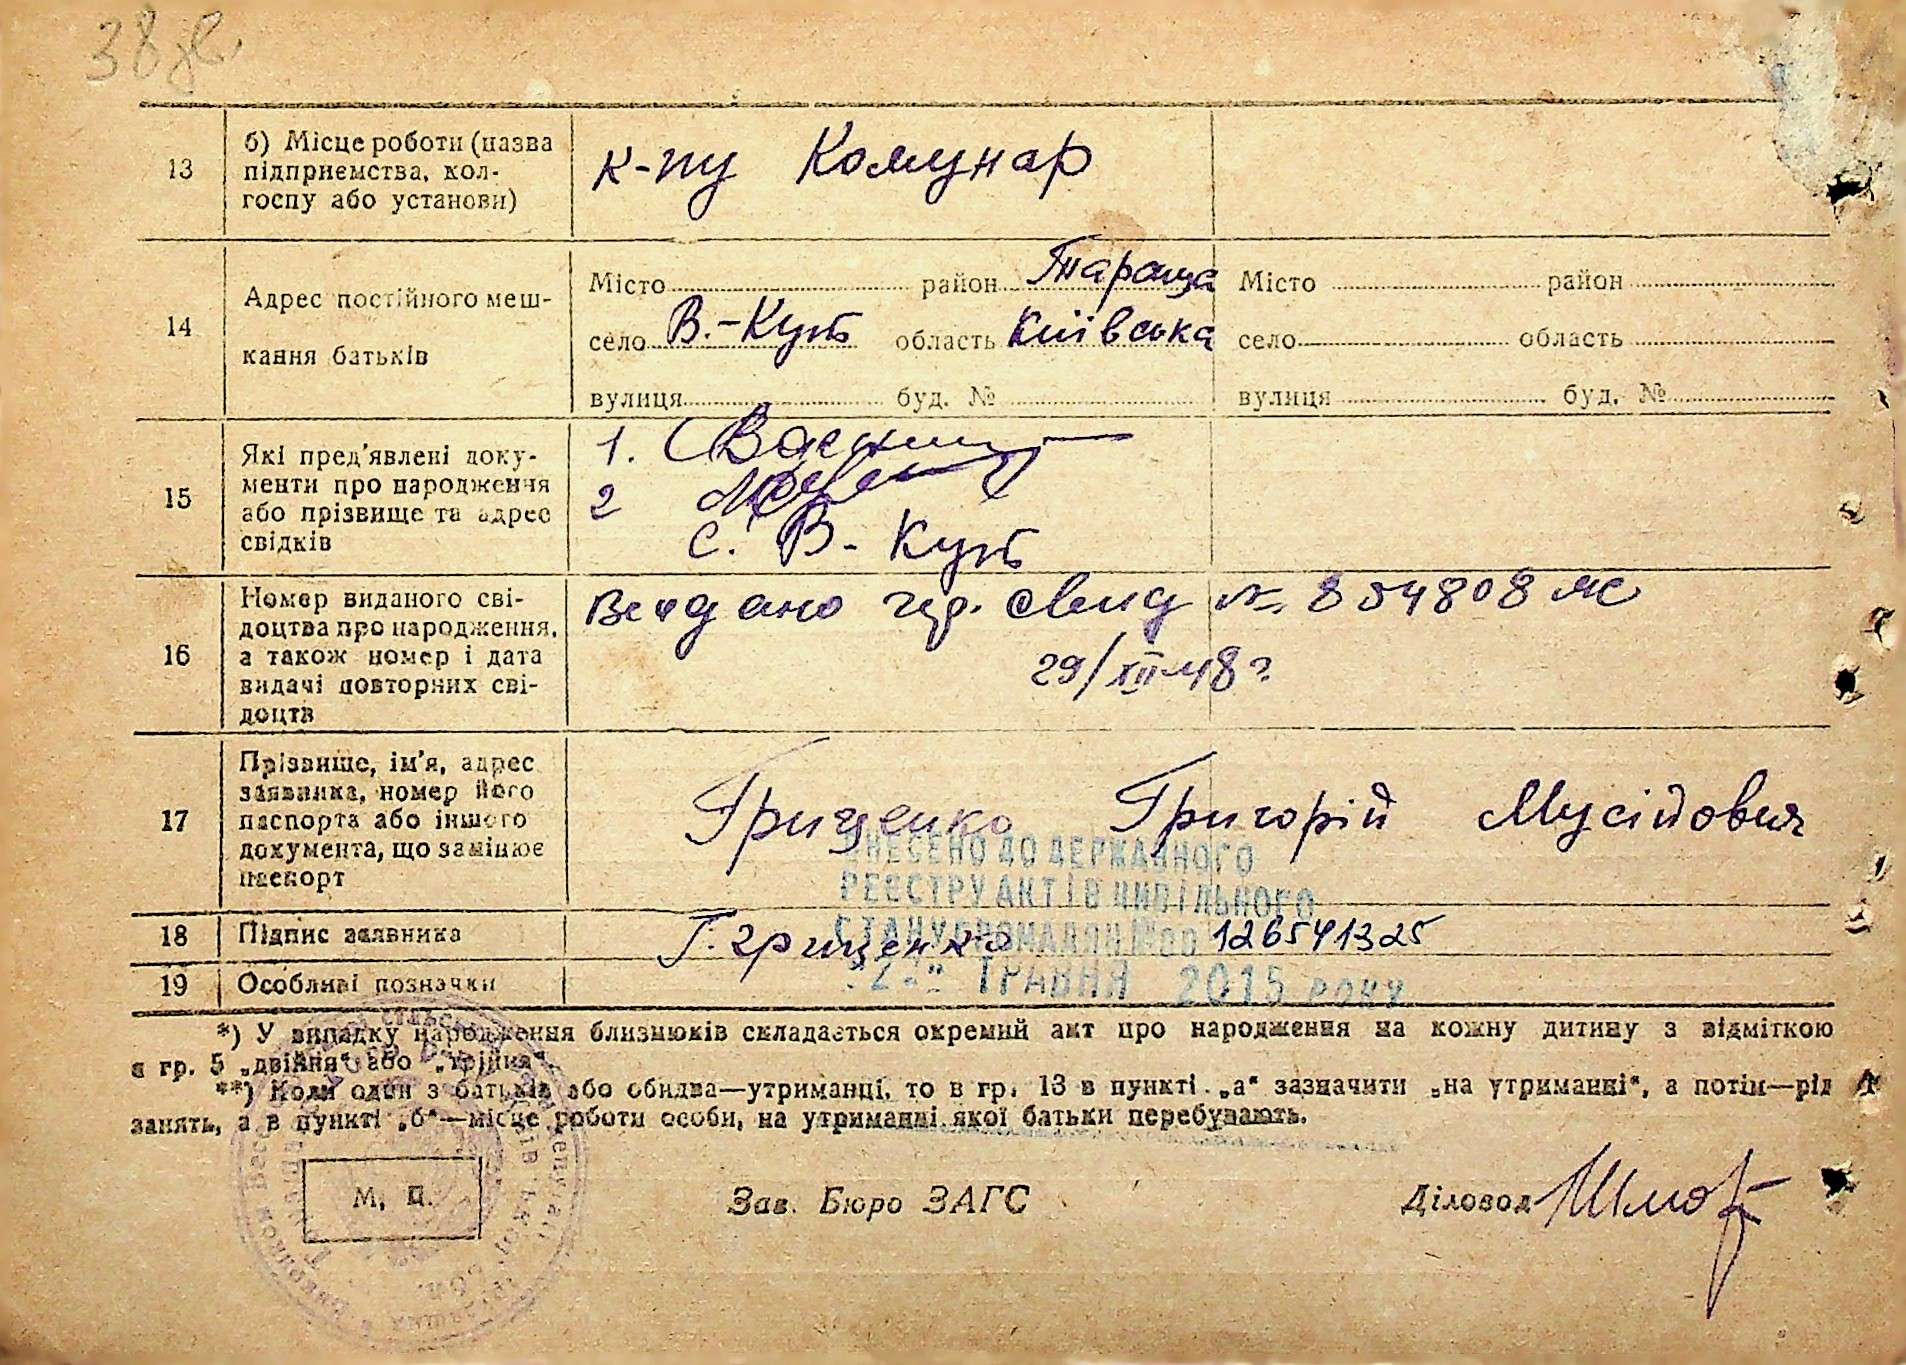 38
13 б) Місце роботи (назва
підприємства, кол-
госпу або установи)
к-пу Комунар
14 Адрес постійного меш-
кання батьків
Місто район Тараща Місто район
село В.-Кут область Київська село область
вулиця буд. № вулиця буд. №
15 Які пред'явлені доку-
менти про народження
або прізвище та адрес
свідків
1.
2
с. В-Кут
16 Номер виданого сві-
доцтва про народження,
а також номер і дата
видачі повторних сві-
доцтв
№ 854808
29/XII-48 г
17 Прізвище, ім'я, адрес
заявника, номер його
паспорта або іншого
документа, що замінює
паспорт
Грищенко Григорій Мусійович
ВНЕСЕНО ДО ДЕРЖАВНОГО
РЕЄСТРУ АКТІВ ЦИВІЛЬНОГО
СТАНУ ГРОМАДЯН №00 126541325
ТРАВНЯ 2015 РОКУ
18 Підпис заявника
Г. Грищенко
19 Особливі позначки
*) У випадку народження близнюків складається окремий акт про народження на кожну дитину з відміткою
в гр. 5 „двійня“ або „трійня“.
**) Коли один з батьків або обидва—утриманці, то в гр. 13 в пункті „а“ зазначити „на утриманні“, а потім—рід
занять, а в пункті „б“—місце роботи особи, на утриманні якої батьки перебувають.
М. П.
Зав. Бюро ЗАГС
Діловод